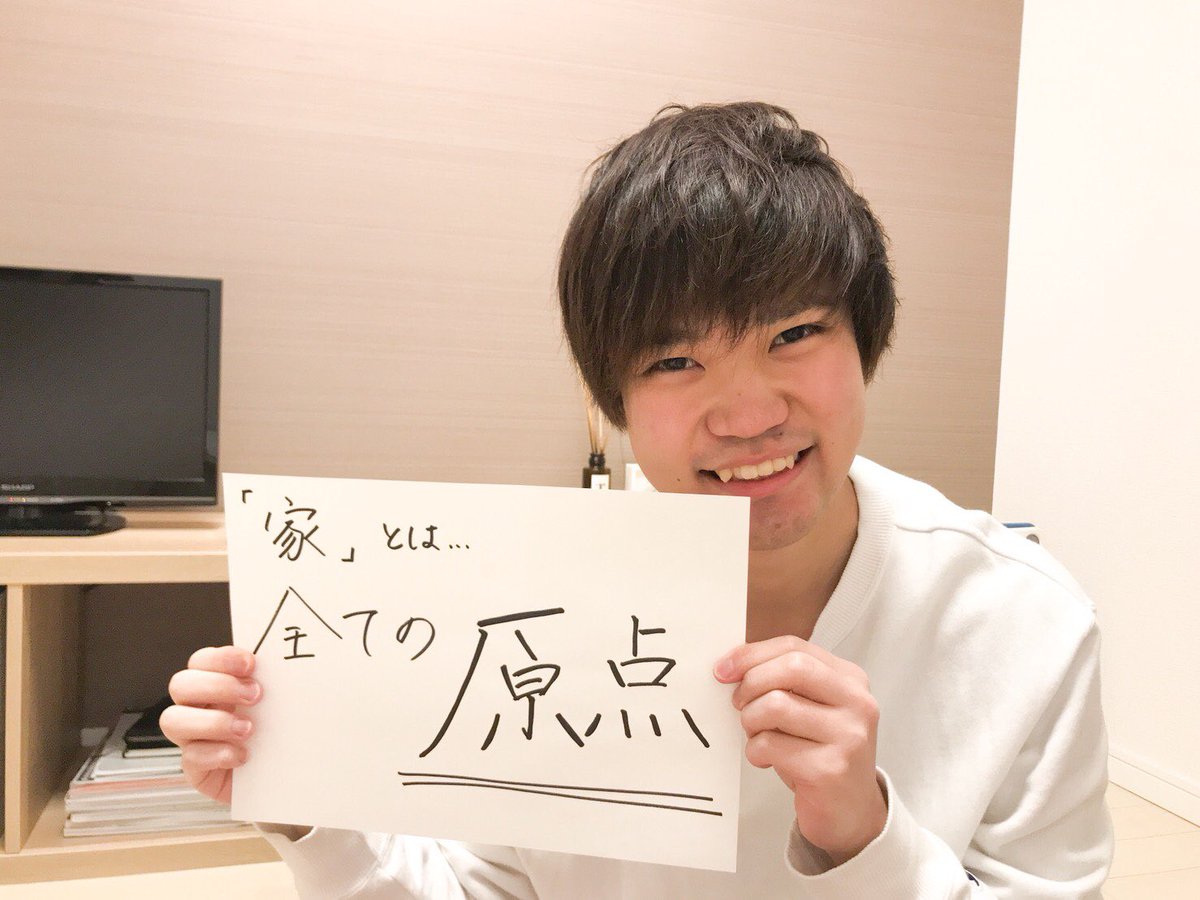 「家」とは...
全ての原点
SHARP